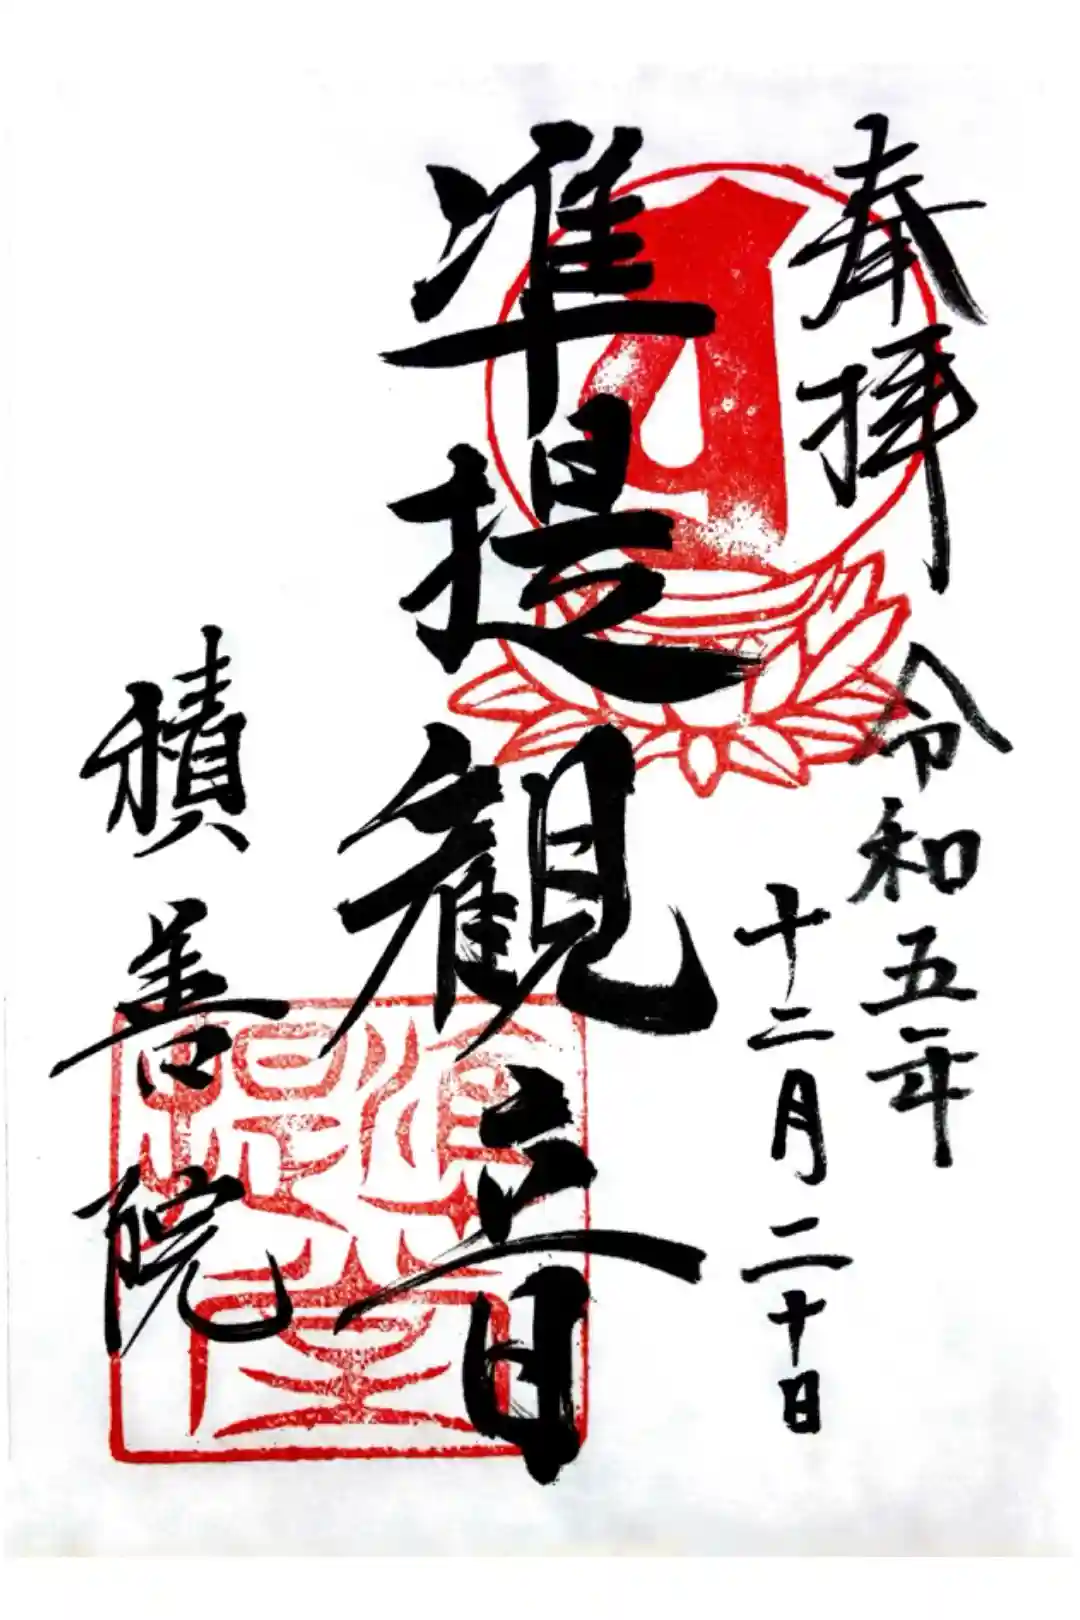 奉拝
令和五年
十二月二十日
准提観音
積善院
準提堂